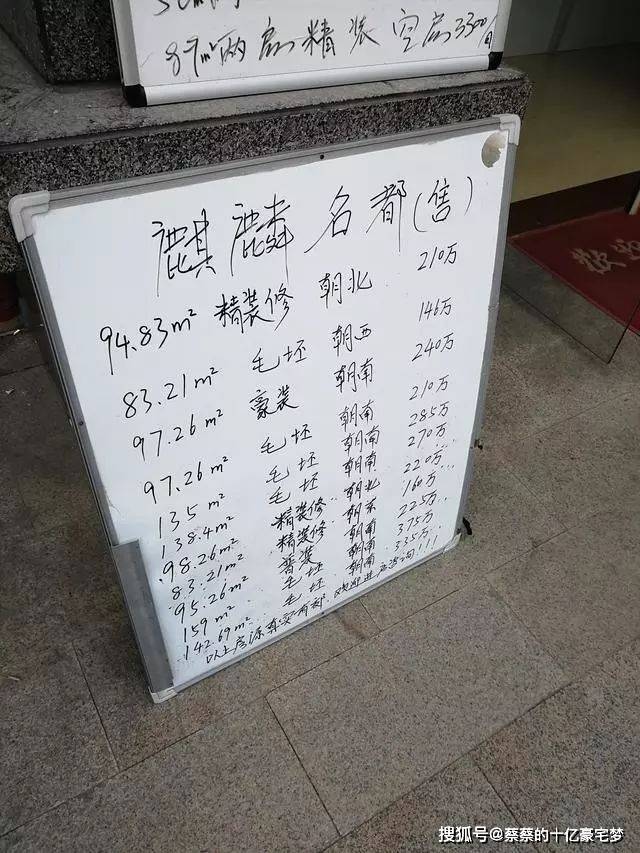 87m²两房精装空房3300/月
麒麟名都(售)
94.83m² 精装修 朝北 210万
83.21m² 毛坯 朝西 146万
97.26m² 豪装 朝南 240万
97.26m² 毛坯 朝南 210万
135m² 毛坯 朝南 285万
138.4m² 毛坯 朝南 270万
98.26m² 精装修 朝北 220万
83.21m² 精装修 朝东 160万
95.26m² 普装 朝南 225万
159m² 毛坯 朝南 375万
142.69m² 毛坯 朝南 335万
以上房源真实有效,欢迎进店咨询!!!
搜狐号@蔡蔡的十亿豪宅梦